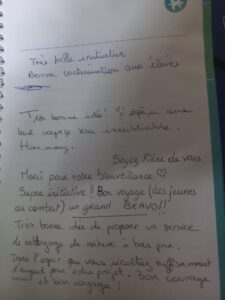 Très belle initiative
Bonne continuation aux élèves
Très bonne idée! J'espère que
leur voyage sera inoubliable.
Harmony.
Soyez Fière de vous
Merci pour votre bienveillance ♡
Super initiative!! Bon voyage (des jeunes
au combat) un grand BRAVO!!
Très bonne idée de proposer un service
de nettoyage de voiture à bas prix.
Dans l'espoir que vous récoltiez suffisamment
d'argent pour votre projet. Bon courage
et bon voyage!